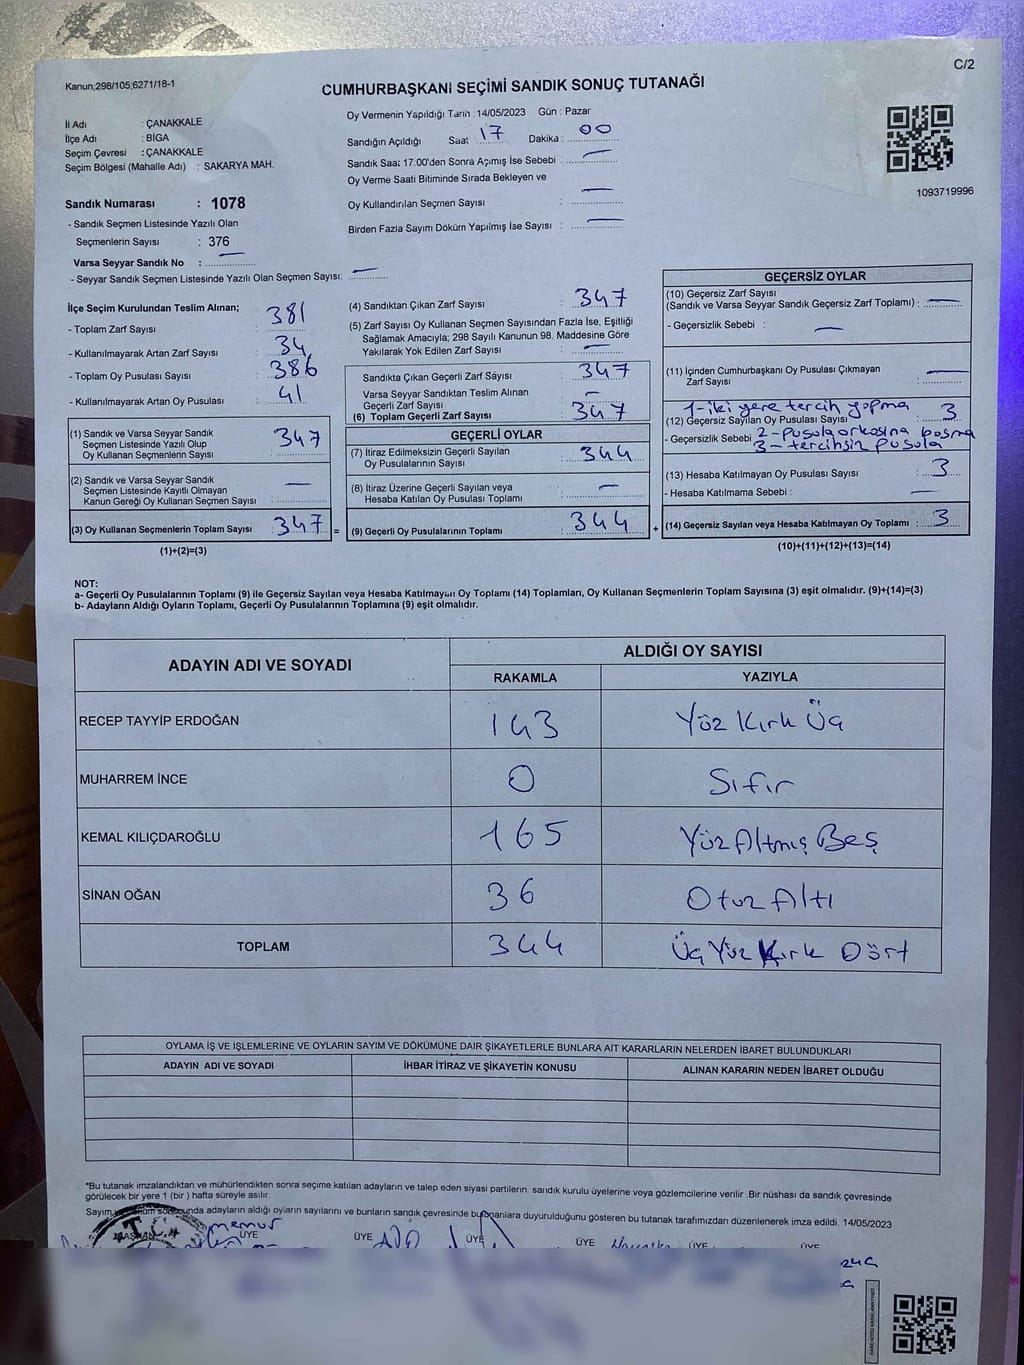 C/2
Kanun;298/105;6271/18-1
CUMHURBAŞKANI SEÇİMİ SANDIK SONUÇ TUTANAĞI
İl Adı : ÇANAKKALE
İlçe Adı : BİGA
Seçim Çevresi : ÇANAKKALE
Seçim Bölgesi (Mahalle Adı) : SAKARYA MAH.
Sandık Numarası : 1078
- Sandık Seçmen Listesinde Yazılı Olan
Seçmenlerin Sayısı : 376
Varsa Seyyar Sandık No : —
- Seyyar Sandık Seçmen Listesinde Yazılı Olan Seçmen Sayısı: —
Oy Vermenin Yapıldığı Tarih :14/05/2023 Gün : Pazar
Sandığın Açıldığı Saat 17 Dakika : 00
Sandık Saat 17:00'den Sonra Açımış İse Sebebi : —
Oy Verme Saati Bitiminde Sırada Bekleyen ve —
Oy Kullandırılan Seçmen Sayısı :
Birden Fazla Sayım Döküm Yapılmış İse Sayısı : —
1093719996
İlçe Seçim Kurulundan Teslim Alınan;
- Toplam Zarf Sayısı : 381
- Kullanılmayarak Artan Zarf Sayısı : 34
- Toplam Oy Pusulası Sayısı : 386
- Kullanılmayarak Artan Oy Pusulası : 41
(1) Sandık ve Varsa Seyyar Sandık
Seçmen Listesinde Yazılı Olup
Oy Kullanan Seçmenlerin Sayısı : 347
(2) Sandık ve Varsa Seyyar Sandık
Seçmen Listesinde Kayıtlı Olmayan
Kanun Gereği Oy Kullanan Seçmen Sayısı : —
(3) Oy Kullanan Seçmenlerin Toplam Sayısı : 347 =
(1)+(2)=(3)
(4) Sandıktan Çıkan Zarf Sayısı : 347
(5) Zarf Sayısı Oy Kullanan Seçmen Sayısından Fazla İse, Eşitliği
Sağlamak Amacıyla; 298 Sayılı Kanunun 98. Maddesine Göre
Yakılarak Yok Edilen Zarf Sayısı : —
Sandıkta Çıkan Geçerli Zarf Sayısı : 347
Varsa Seyyar Sandıktan Teslim Alınan
Geçerli Zarf Sayısı : —
(6) Toplam Geçerli Zarf Sayısı : 347
GEÇERLİ OYLAR
(7) İtiraz Edilmeksizin Geçerli Sayılan
Oy Pusulalarının Sayısı : 344
(8) İtiraz Üzerine Geçerli Sayılan veya
Hesaba Katılan Oy Pusulası Toplamı : —
(9) Geçerli Oy Pusulalarının Toplamı : 344 +
GEÇERSİZ OYLAR
(10) Geçersiz Zarf Sayısı
(Sandık ve Varsa Seyyar Sandık Geçersiz Zarf Toplamı) : —
- Geçersizlik Sebebi : —
(11) İçinden Cumhurbaşkanı Oy Pusulası Çıkmayan
Zarf Sayısı : —
1-iki yere tercih yapma
(12) Geçersiz Sayılan Oy Pusulası Sayısı : 3
- Geçersizlik Sebebi 2-pusula arkasına basma
3-tercihsin pusula
(13) Hesaba Katılmayan Oy Pusulası Sayısı : 3
- Hesaba Katılmama Sebebi : —
(14) Geçersiz Sayılan veya Hesaba Katılmayan Oy Toplamı : 3
(10)+(11)+(12)+(13)=(14)
NOT:
a- Geçerli Oy Pusulalarının Toplamı (9) ile Geçersiz Sayılan veya Hesaba Katılmayan Oy Toplamı (14) Toplamları, Oy Kullanan Seçmenlerin Toplam Sayısına (3) eşit olmalıdır. (9)+(14)=(3)
b- Adayların Aldığı Oyların Toplamı, Geçerli Oy Pusulalarının Toplamına (9) eşit olmalıdır.
ADAYIN ADI VE SOYADI ALDIĞI OY SAYISI
RAKAMLA YAZIYLA
RECEP TAYYİP ERDOĞAN 143 Yüz Kırk Üç
MUHARREM İNCE 0 Sıfır
KEMAL KILIÇDAROĞLU 165 Yüz Altmış Beş
SİNAN OĞAN 36 Otuz Altı
TOPLAM 344 Üç Yüz Kırk Dört
OYLAMA İŞ VE İŞLEMLERİNE VE OYLARIN SAYIM VE DÖKÜMÜNE DAİR ŞİKAYETLERLE BUNLARA AİT KARARLARIN NELERDEN İBARET BULUNDUKLARI
ADAYIN ADI VE SOYADI İHBAR İTİRAZ VE ŞİKAYETİN KONUSU ALINAN KARARIN NEDEN İBARET OLDUĞU
*Bu tutanak imzalandıktan ve mühürlendikten sonra seçime katılan adayların ve talep eden siyasi partilerin sandık kurulu üyelerine veya gözlemcilerine verilir .Bir nüshası da sandık çevresinde
görülecek bir yere 1 (bir ) hafta süreyle asılır.
Sayım adayların aldığı oyların sayılarını ve bunların sandık çevresinde bulunanlara duyurulduğunu gösteren bu tutanak tarafımızdan düzenlenerek imza edildi. 14/05/2023
memur
ÜYE ÜYE ÜYE ÜYE ÜYE ÜYE